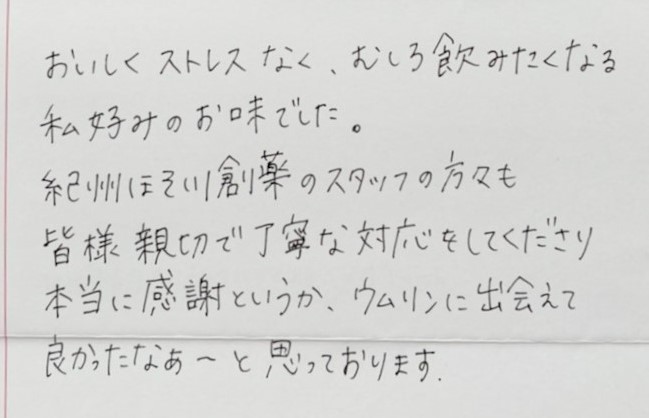 おいしくストレスなく、むしろ飲みたくなる
私好みのお味でした。
紀州ほそ川創薬のスタッフの方々も
皆様親切で丁寧な対応をしてくださり
本当に感謝というか、ウムリンに出会えて
良かったなぁ～と思っております.